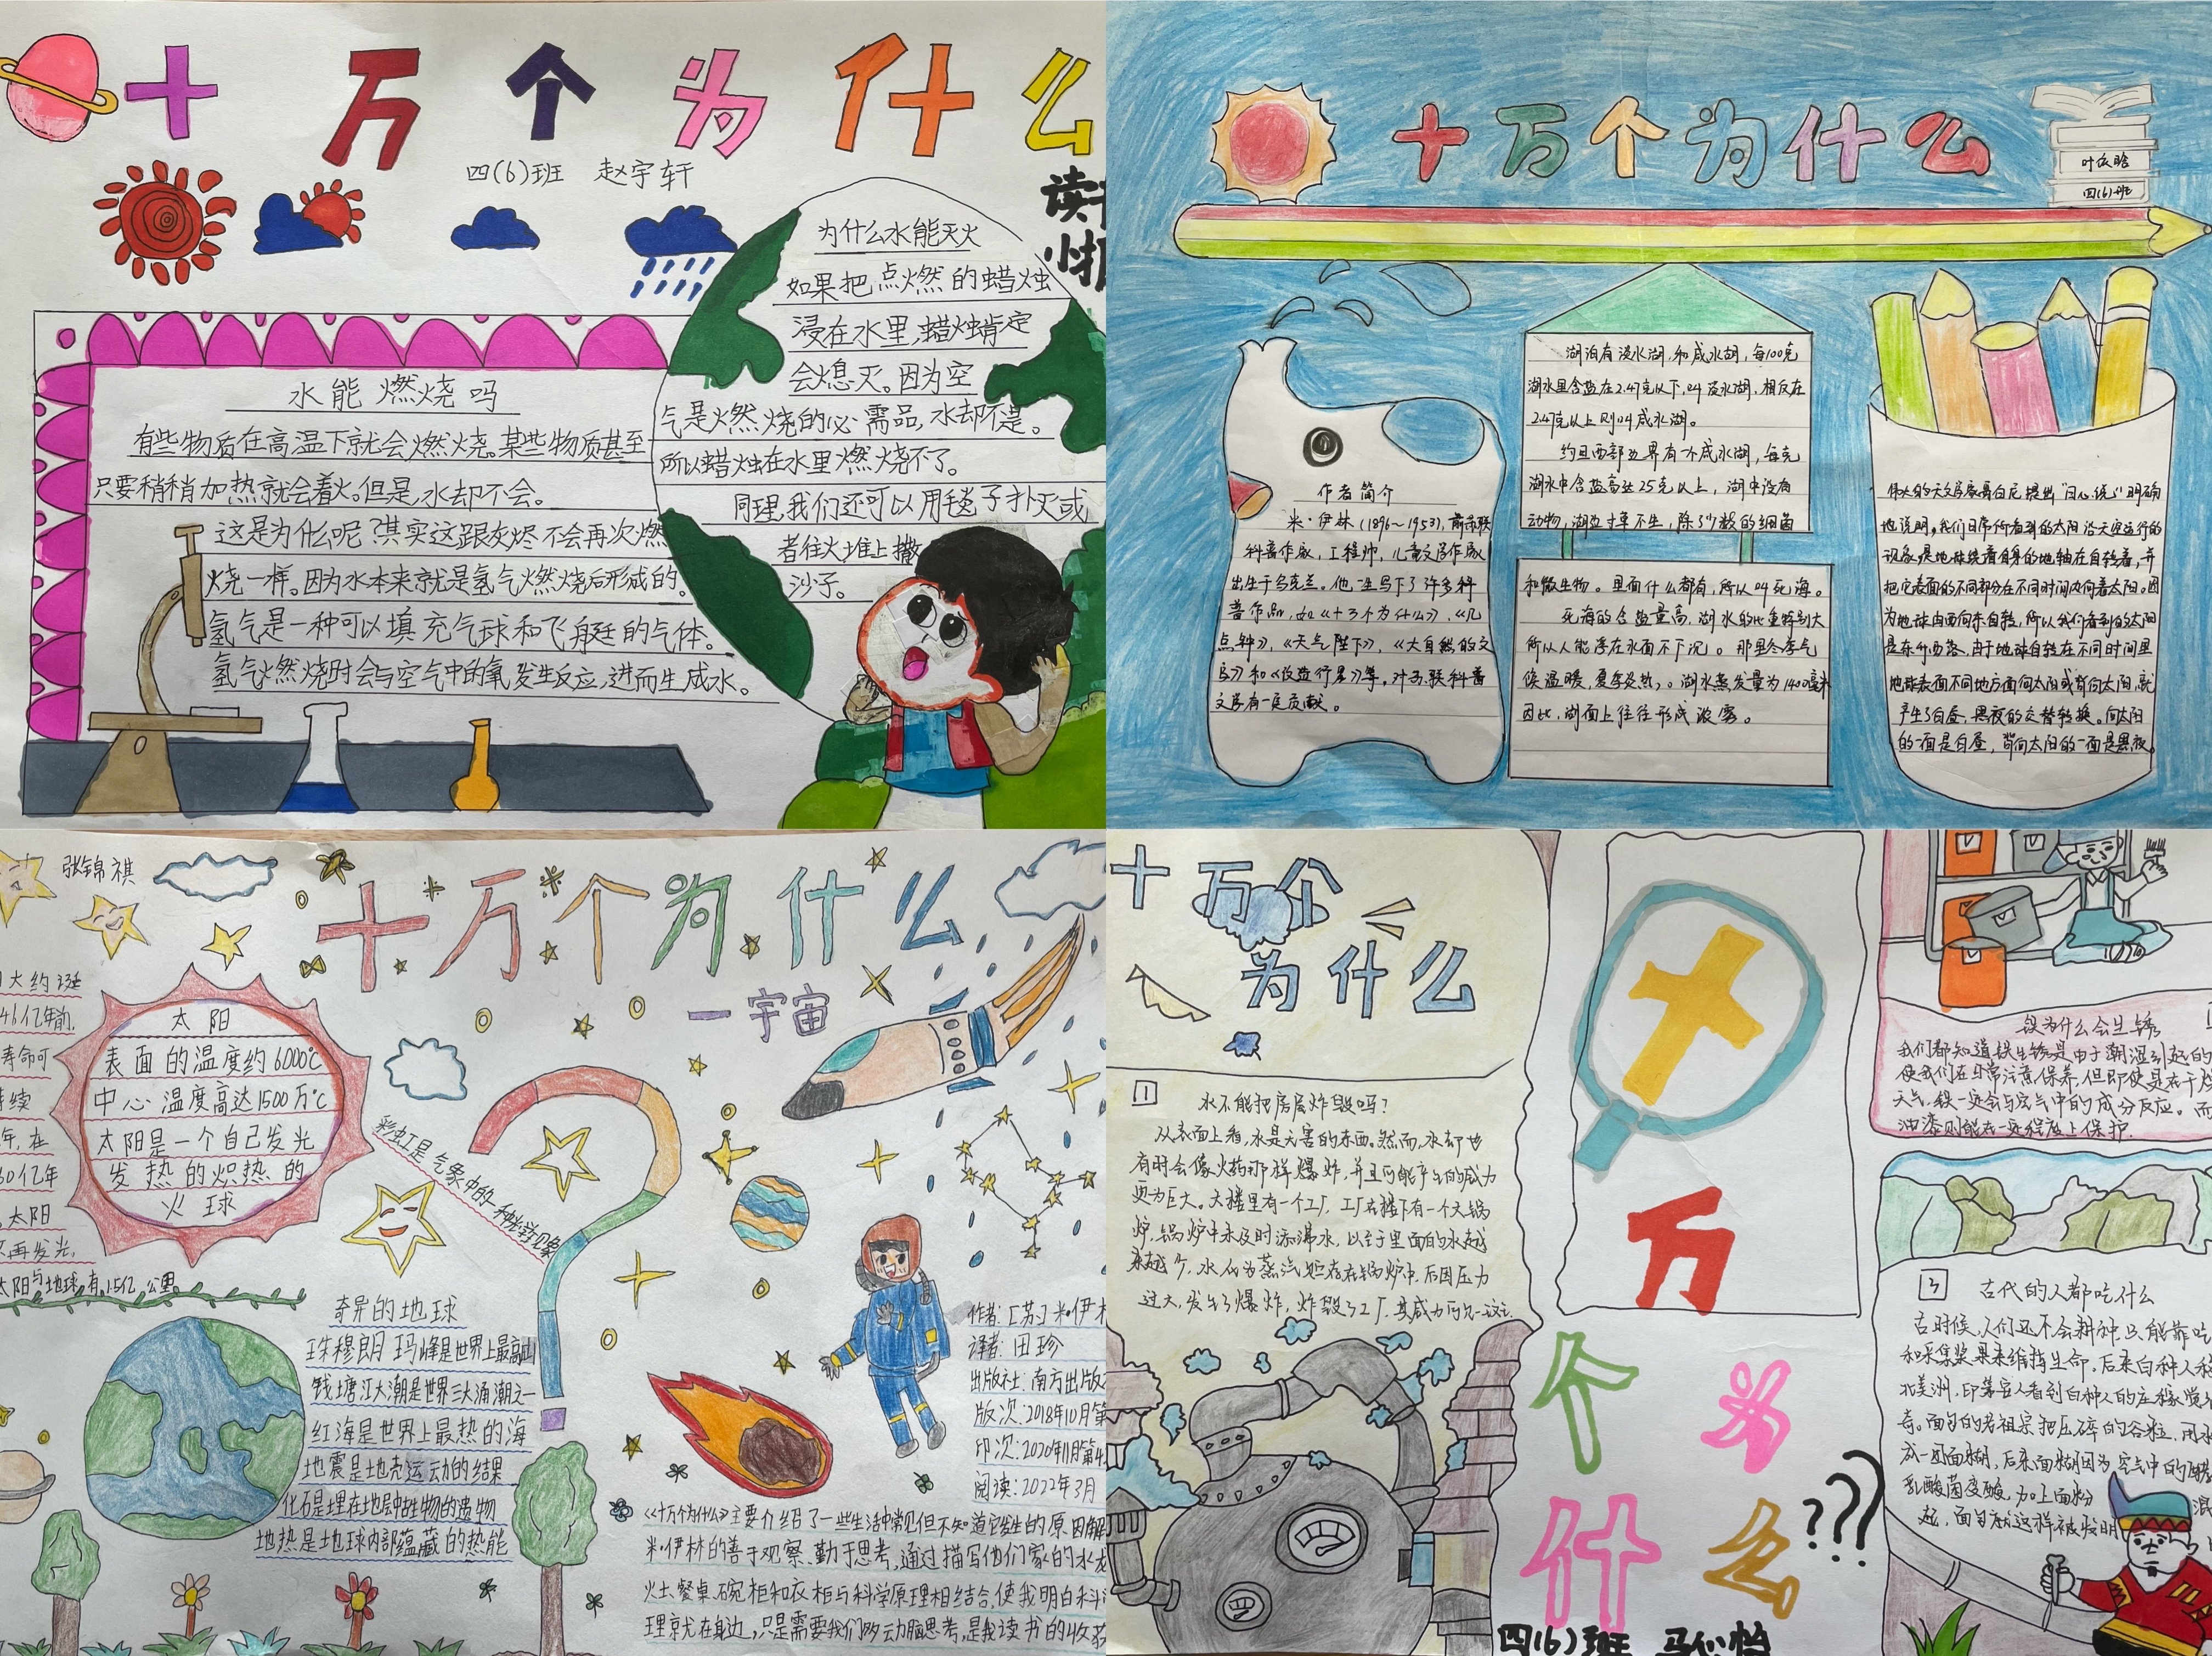 十万个为什么
四(6)班 赵宇轩
读书
小报
水能燃烧吗
有些物质在高温下就会燃烧。某些物质甚至
只要稍稍加热就会着火。但是,水却不会。
这是为什么呢?其实这跟灰烬不会再次燃
烧一样。因为水本来就是氢气燃烧后形成的。
氢气是一种可以填充气球和飞艇的气体。
氢气燃烧时会与空气中的氧发生反应,进而生成水。
为什么水能灭火
如果把点燃的蜡烛
浸在水里,蜡烛肯定
会熄灭。因为空
气是燃烧的必需品,水却不是。
所以蜡烛在水里燃烧不了。
同理,我们还可以用毯子扑灭或
者往火堆上撒
沙子。
十万个为什么
四(6)班
作者简介
米·伊林(1896~1953),前苏联
科普作家,工程师,儿童文学作家
出生于乌克兰。他一生写下了许多科
普作品,如《十万个为什么》,《几
点钟》,《天气陛下》,《大自然的文
字》和《改造行星》等。对苏联科普
文学有一定贡献。
湖泊有淡水湖和咸水湖,每100克
湖水里含盐在2.47克以下,叫淡水湖,相反在
2.47克以上则叫咸水湖。
约旦西部边界有个咸水湖,每克
湖水中含盐高达25克以上,湖中没有
动物,湖边寸草不生,除了少数的细菌
和微生物。里面什么都有,所以叫死海。
死海的含盐量高,湖水的比重特别大
所以人能浮在水面不下沉。那里冬季气
候温暖,夏季炎热,。湖水蒸发量为1400毫米
因此,湖面上往往形成浓雾。
伟大的天文学家哥白尼提出"日心说"明确
地说明,我们日常所看到的太阳沿天空运行的
现象,是地球绕着自身的地轴在自转着,并
把它表面的不同部分在不同时间内向着太阳。因
为地球由西向东自转,所以我们看到的太阳
是东升西落,由于地球自转在不同时间里
地球表面不同地方面向太阳或背向太阳,就
产生了白昼、黑夜的交替转换。向太阳
的一面是白昼,背向太阳的一面是黑夜。
张锦祺
十万个为什么
—宇宙
大约诞
46亿年前.
寿命可
持续
年,在
60亿年
,太阳
不再发光.
太阳与地球有1.5亿公里.
太阳
表面的温度约6000℃
中心温度高达1500万℃
太阳是一个自己发光
发热的炽热的
火球
彩虹是气象中的一种光学现象
奇异的地球
珠穆朗玛峰是世界上最高山
钱塘江大潮是世界三大涌潮之一
红海是世界上最热的海
地震是地壳运动的结果
化石是埋在地层中生物的遗物
地热是地球内部蕴藏的热能
作者:[苏]米·伊林
译者:田珍
出版社:南方出版
版次:2018年10月第
印次:2020年11月第4
阅读:2022年3月
《十万个为什么》主要介绍了一些生活中常见但不知道它发生的原因
米·伊林的善于观察、勤于思考,通过描写他们家的水龙
火土、餐桌、碗柜和衣柜与科学原理相结合,使我明白科
理就在身边,只是需要我们多动脑思考,是我读书的收获
十万个
为什么
1
水不能把房屋炸毁吗?
从表面上看,水是无害的东西。然而,水却也
有时会像火药那样爆炸,并且可能产生的威力
更为巨大。大楼里有一个工厂,工厂在楼下有一个大锅
炉,锅炉中未及时添沸水,以至于里面的水越
来越少,水化为蒸汽贮存在锅炉中,后因压力
过大,发生了爆炸,炸毁了工厂,其威力
十万个为什么
???
四(6)班 马心怡
铁为什么会生锈
我们都知道铁生锈是由于潮湿引起的
使我们在日常注意保养,但即使是在干
天气,铁一定会与空气中的成分反应。而
油漆则能在一定程度上保护.
3
古代的人都吃什么
古时候,人们还不会耕种,只能靠吃
和采集浆果来维持生命,后来白种人
北美洲,印第安人看到白种人的庄稼觉
奇。面包的老祖宗把压碎的谷粒,用水
成一团面糊,后来面糊因为空气中的酵
乳酸菌变酸,加上面粉
起,面包就这样被发明